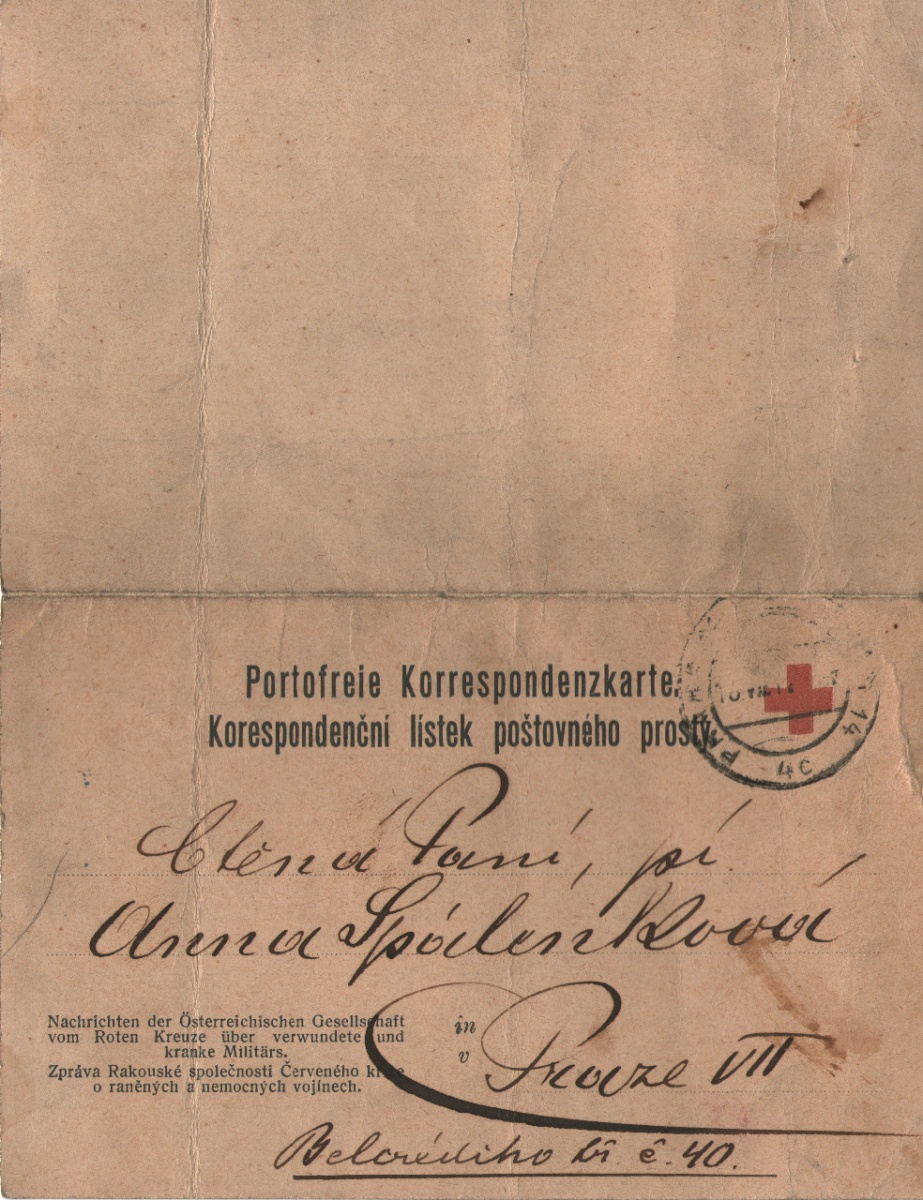 Portofreie Korrespondenzkarte.
Korespondenční lístek poštovného prostý.
14
4c
Ctěná Paní, pí.
Anna Spálenková
Nachrichten der Österreichischen Gesellschaft
vom Roten Kreuze über verwundete und
kranke Militärs.
Zpráva Rakouské společnosti Červeného kříže
o raněných a nemocných vojínech.
in
v
Praze VII
Belcrediho tř. č. 40.